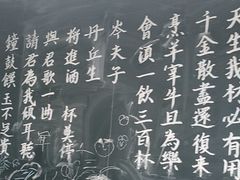 天生我材必有用
千金散盡還復來
烹羊宰牛且為樂
會須一飲三百杯
岑夫子
丹丘生
將進酒
杯莫停
與君歌一曲
請君為我傾耳聽
鐘鼓饌玉不足貴